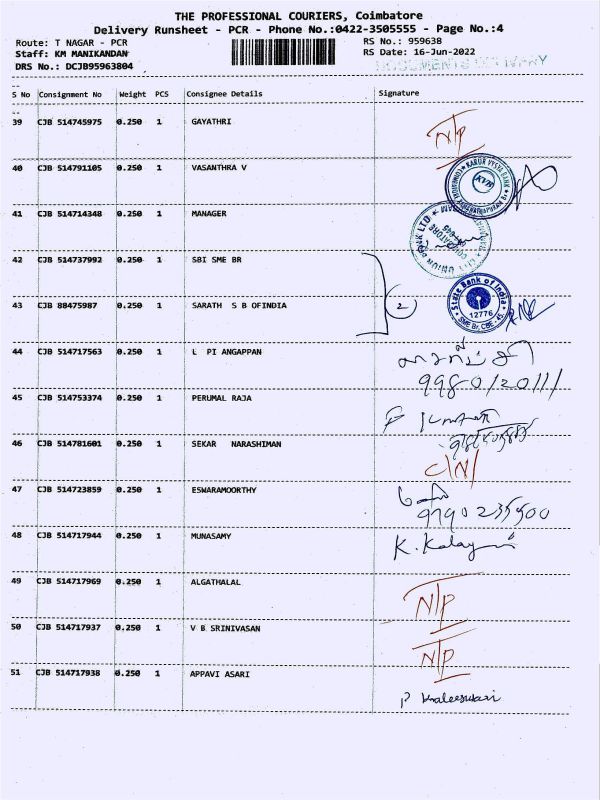 THE PROFESSIONAL COURIERS, Coimbatore
Delivery Runsheet - PCR - Phone No.:0422-3505555 - Page No.:4
Route: T NAGAR - PCR RS No.: 959638
Staff: KM MANIKANDAN RS Date: 16-Jun-2022
DRS No.: DCJB95963804
S No Consignment No Weight PCS Consignee Details Signature
39 CJB 514745975 0.250 1 GAYATHRI N/P
40 CJB 514791105 0.250 1 VASANTHRA V KARUR VYSYA BANK KVB
41 CJB 514714348 0.250 1 MANAGER CITY UNION BANK LTD COIMBATORE
42 CJB 514737992 0.250 1 SBI SME BR
43 CJB 88475987 0.250 1 SARATH S B OFINDIA 2 State Bank of India 12776 SME Br, CBE - 45
44 CJB 514717563 0.250 1 L PI ANGAPPAN
45 CJB 514753374 0.250 1 PERUMAL RAJA
46 CJB 514781601 0.250 1 SEKAR NARASHIMAN C/N/
47 CJB 514723859 0.250 1 ESWARAMOORTHY
9790235500
48 CJB 514717944 0.250 1 MUNASAMY
49 CJB 514717969 0.250 1 ALGATHALAL N/P
50 CJB 514717937 0.250 1 V B SRINIVASAN N/P
51 CJB 514717938 0.250 1 APPAVI ASARI P Kaleeswari